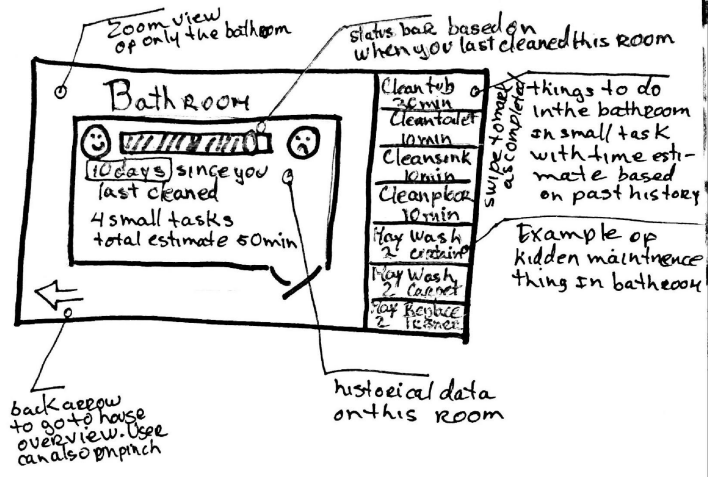 Zoom view
of only the bathroom
status bar based on
when you last cleaned this room
Bathroom
10 days since you
last cleaned
4 small tasks
total estimate 50min
Clean tub
Clean toilet
10 min
Clean sink
10 min
Clean floor
10 min
May Wash
2
May Wash
2 Carpet
May Replace
2
swipe to mark
as completed
things to do
in the bathroom
in small task
with time esti-
mate based
on past history
Example of
hidden maintnence
thing in bathroom
historical data
on this room
back arrow
to go to house
overview. User
can also pinch